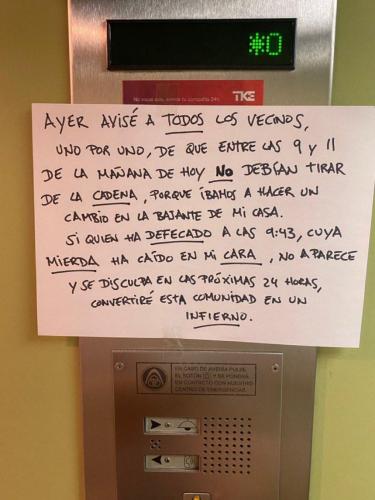 *0
TKE
AYER AVISÉ A TODOS LOS VECINOS,
UNO POR UNO, DE QUE ENTRE LAS 9 Y 11
DE LA MAÑANA DE HOY NO DEBÍAN TIRAR
DE LA CADENA, PORQUE ÍBAMOS A HACER UN
CAMBIO EN LA BAJANTE DE MI CASA.
SI QUIEN HA DEFECADO A LAS 9:43, CUYA
MIERDA HA CAÍDO EN MI CARA, NO APARECE
Y SE DISCULPA EN LAS PRÓXIMAS 24 HORAS,
CONVERTIRÉ ESTA COMUNIDAD EN UN
INFIERNO.
EN CASO DE AVERIA PULSE
EL BOTON Y SE PONDRA
EN CONTACTO CON NUESTRO
CENTRO DE EMERGENCIAS